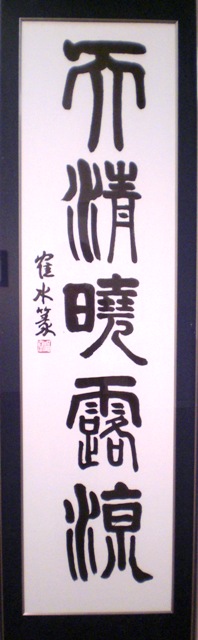 天清曉露涼
隺水篆